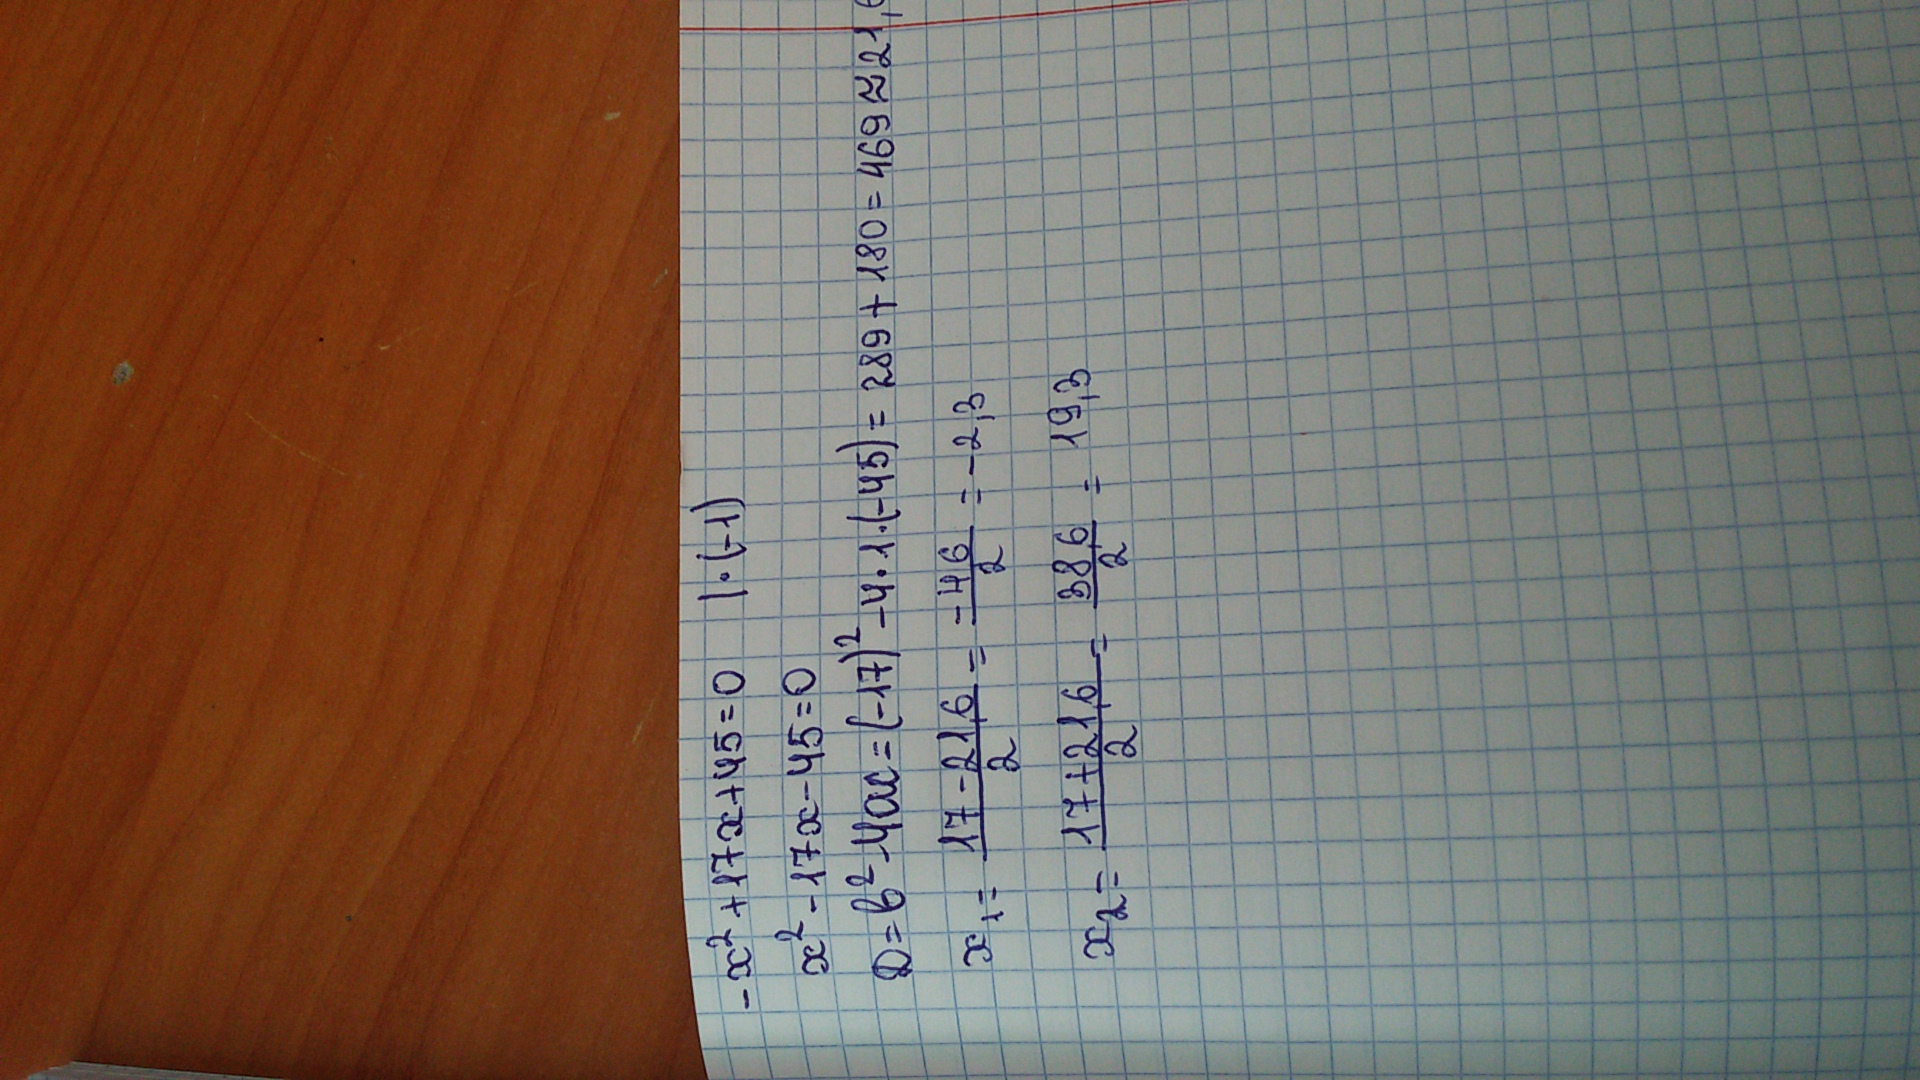 -x²+17x+45=0 |·(-1)
x²-17x-45=0
D=b²-4ac=(-17)²-4·1·(-45)=289+180=469≈21,6
x₁=(17-21,6)/2=-4,6/2=-2,3
x₂=(17+21,6)/2=38,6/2=19,3